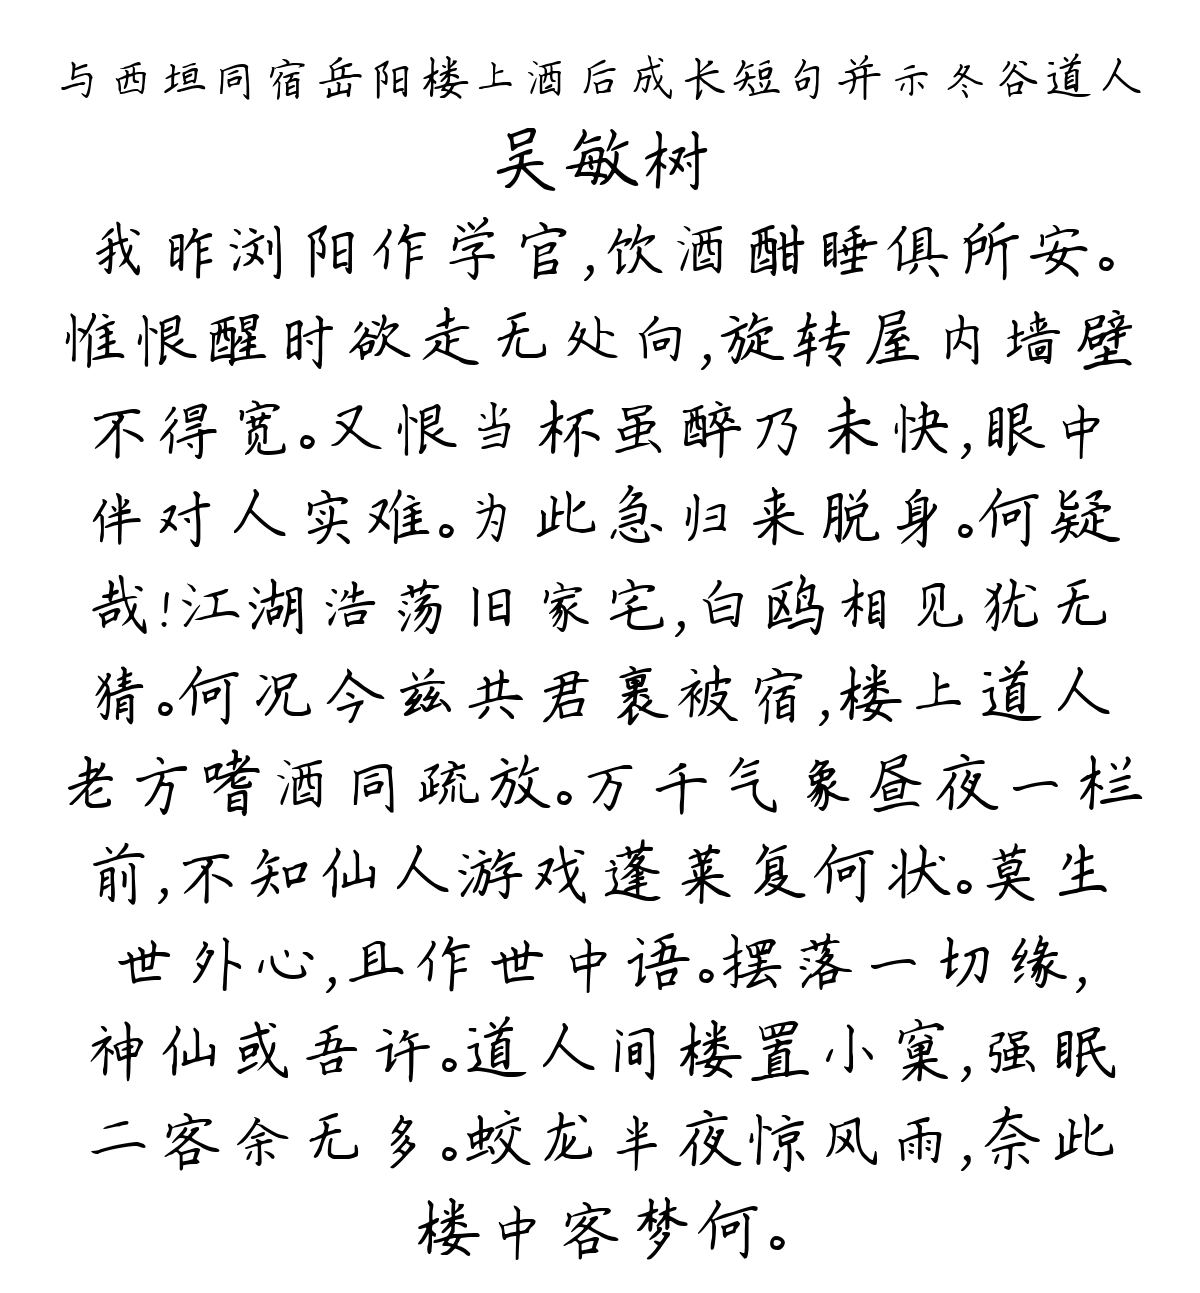 与西垣同宿岳阳楼上酒后成长短句并示冬谷道人
吴敏树
我昨浏阳作学官,饮酒酣睡俱所安。
惟恨醒时欲走无处向,旋转屋内墙壁
不得宽。又恨当杯虽醉乃未快,眼中
伴对人实难。为此急归来脱身。何疑
哉!江湖浩荡旧家宅,白鸥相见犹无
猜。何况今兹共君裹被宿,楼上道人
老方嗜酒同疏放。万千气象昼夜一栏
前,不知仙人游戏蓬莱复何状。莫生
世外心,且作世中语。摆落一切缘,
神仙或吾许。道人间楼置小窠,强眠
二客余无多。蛟龙半夜惊风雨,奈此
楼中客梦何。